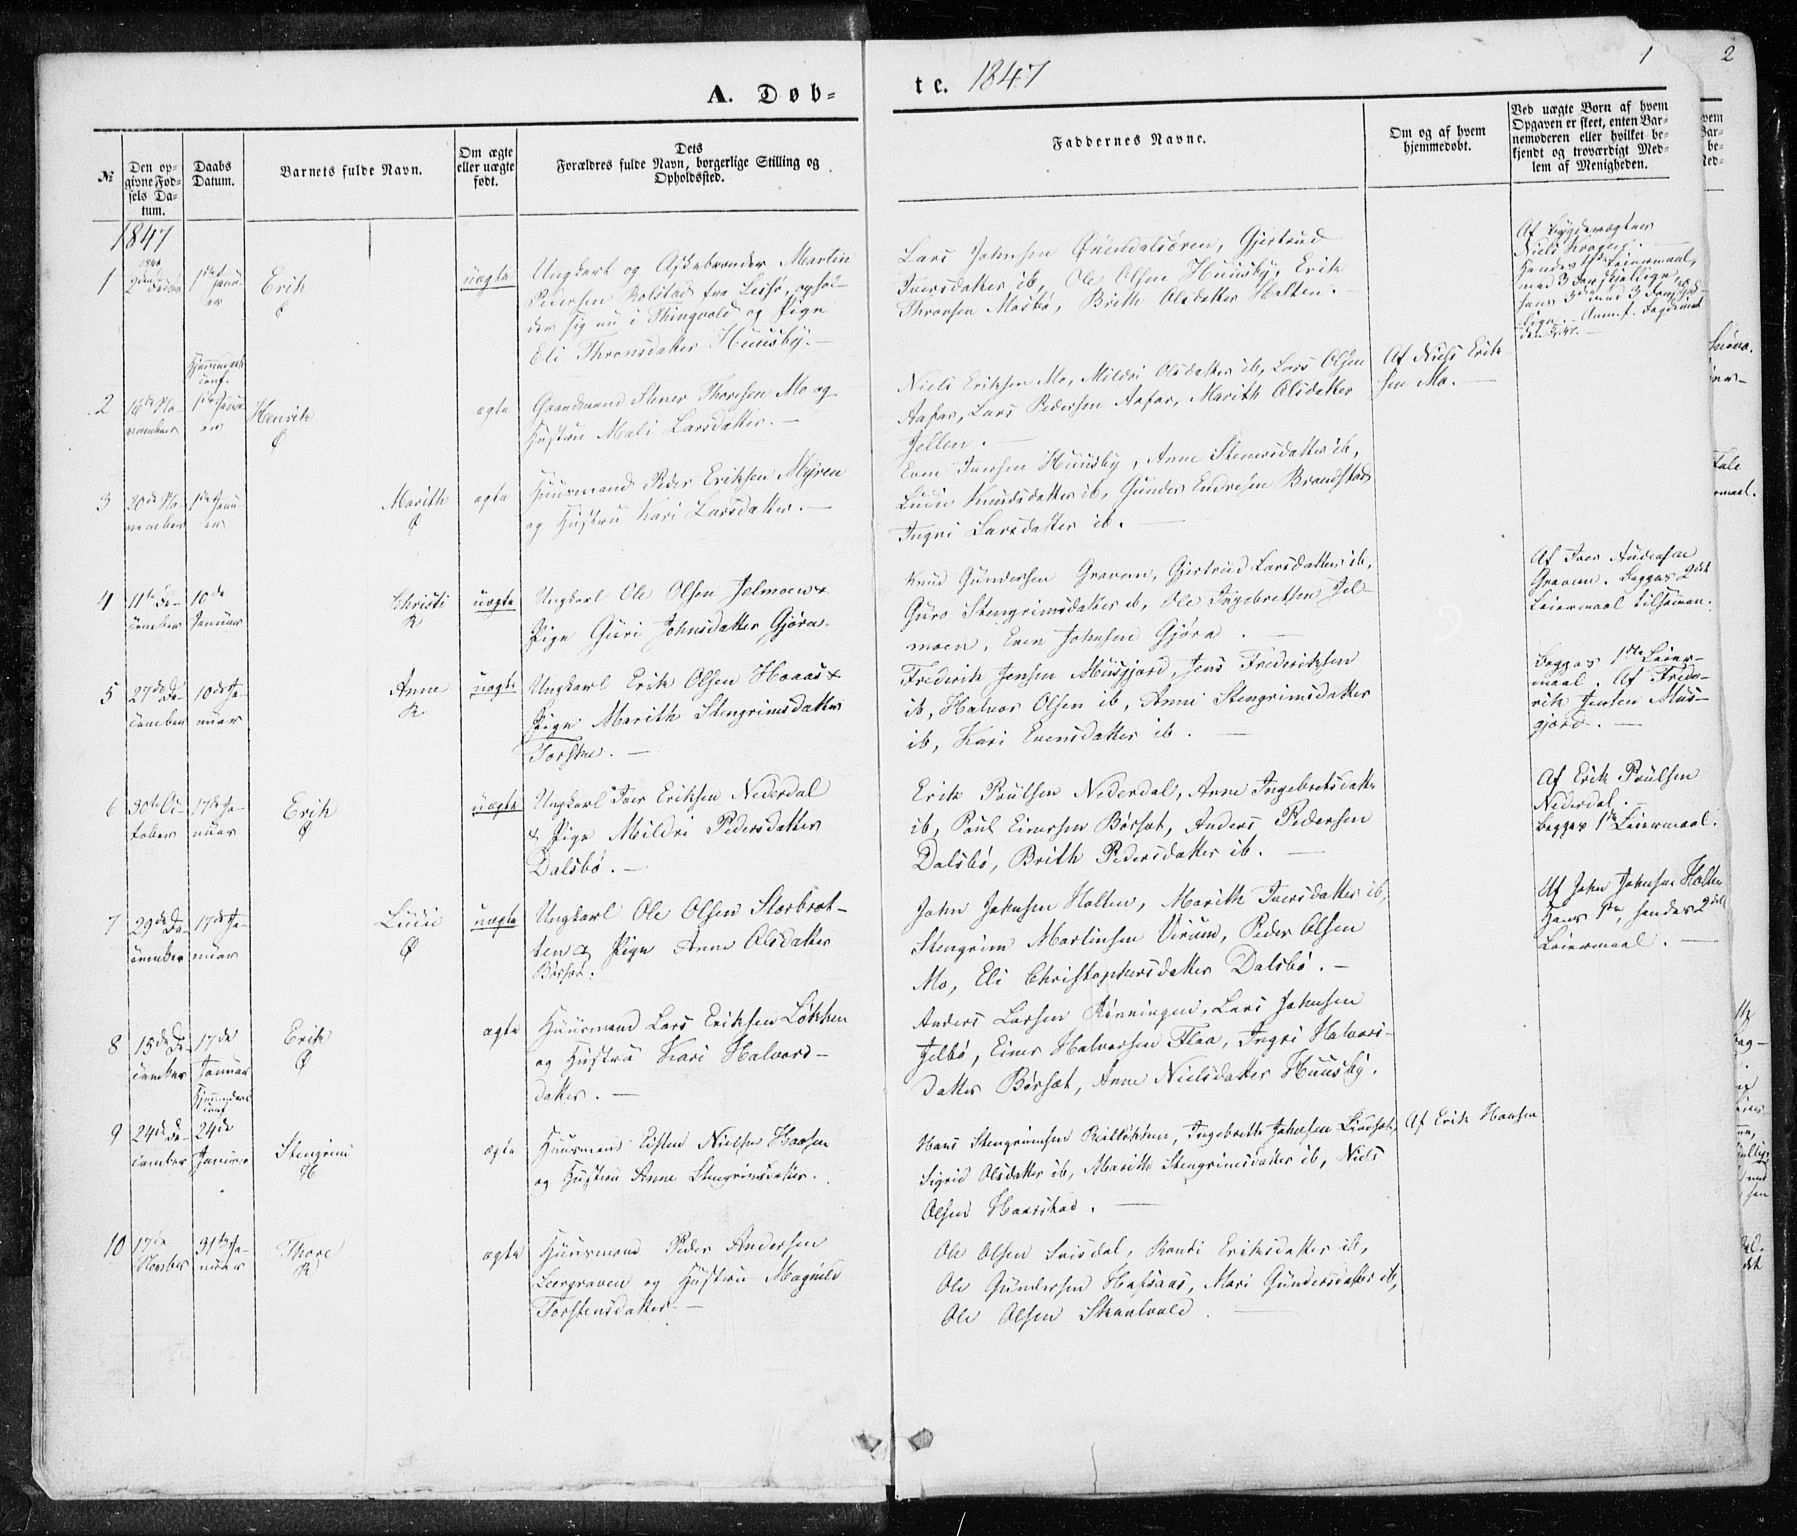 1 2
A. Døb- te. 1847
№
Den opgivne Fødsels Datum.
Daabs Datum.
Barnets fulde Navn.
Om ægte eller uægte født.
Dets Forældres fulde Navn, borgerlige Stilling og Opholdssted.
Faddernes Navne.
Om og af hvem hjemmedøbt.
Ved uægte Børn af hvem Opgaven er skeet, enten Barnemoderen eller hvilket bekjendt og troværdigt Medlem af Menigheden.
1847
1
1846
Erik
uægte
Ungkarl og Askebrænder Martin
Pedersen Bolstad fra Lessø, ophol-
der sig nu i Thingvold og Pige
Eli Thronsdatter Huusby. —
Lars Johnsen Grøndalsøren, Gjertrud
Iversdatter ib, Ole Olsen Huusby, Erik
Thronsen Mosbø, Brith Olsdatter Holten.
2
16de No-
vember
1ste Janu-
ar
Henrik
ægte
Gaardmand Stener Thoresen Mo og
Hustru Mali Larsdatter. —
Niels Eriksen Mo, Mildri Olsdatter ib, Lars Olsen
Aafar, Lars Pedersen Aafar, Marith Olsdatter
Jellen. —
Af Niels Erik-
sen Mo. —
3
20de No-
vember
1ste Janu-
ar
Marith
Ø
ægte
Huusmand Peder Eriksen Myren
og Hustru Kari Larsdatter. —
Even Iversen Huusby, Anne Stenersdatter ib,
Lucie Knudsdatter ib, Gunder Endresen Brandstad
Ingri Larsdatter ib. —
4
11te De-
cember
10de
Januar
Christi
R
uægte
Ungkarl Ole Olsen Jelmoen &
Pige Guri Johnsdatter Gjøra.
Knud Gundersen Graven, Gjertrud Larsdatter ib,
Guro Stengrimsdatter ib, Ole Ingebretsen Jel-
moen, Even Johnsen Gjøra. —
Af Iver Audensen
Graven. Begges 2det
Leiermaal tilsamman.
5
27de De-
cember
10de Ja-
nuar
Anne
R
uægte
Ungkarl Erik Olsen Hoaas &
Pige Marith Stengrimsdatter
Torske. —
Frederik Jensen Musgjerd, Jens Frederiksen
ib, Halvor Olsen ib, Anni Stengrimsdatter
ib, Kari Evensdatter ib. —
Begges 1ste Leier-
maal. Af Frede-
rik Jensen Mus-
gjerd. —
6
30te Oc-
tober
17de Ja-
nuar
Erik
Ø
uægte
Ungkarl Iver Eriksen Nederdal
& Pige Mildri Pedersdatter
Dalsbø. —
Erik Poulsen Nederdal, Anne Ingebretsdatter
ib, Poul Einersen Børset, Anders Pedersen
Dalsbø, Brith Pedersdatter ib. —
Af Erik Poulsen
Nederdal. —
Begges 1ste Leiermaal.
7
29de De-
cember
17de Ja-
nuar
Lucie
Ø
uægte
Ungkarl Ole Olsen Storbrot-
ten & Pige Anne Olsdatter
Børset.
John Johnsen Holten, Marith Iversdatter ib,
Stengrim Martinsen Virum, Peder Olsen
Mo, Eli Christophersdatter Dalsbø. —
Af John Johnsen Holten
Hans 1ste, hendes 2det
Leiermaal. —
8
15de De-
cember
17de
Januar
Erik
Ø
ægte
Huusmand Lars Eriksen Løkken
og Hustru Kari Halvors-
datter. —
Anders Larsen Rønningen, Lars Johnsen
Jelbø, Einer Halvorsen Flaa, Ingri Halvors-
datter Børset, Anne Nielsdatter Huusby.
9
24de De-
cember
24de
Januar
Stengrim
H
ægte
Huusmand Eisten Nielsen Haasen
og Hustru Anne Stengrimsdatter.
Sigrid Olsdatter ib, Marith Stengrimsdatter ib, Niels
Olsen Haarstad. —
Af Erik Hansen
10
17de
31te Ja-
nuar
Thore
R
ægte
Huusmand Peder Andersen
Leergraven og Hustru Magnild
Torstensdatter —
Ole Olsen Svisdal, Randi Eriksdatter ib,
Ole Gundersen Hafsaas, Mari Gundersdatter ib,
Ole Olsen Skaalvold. —